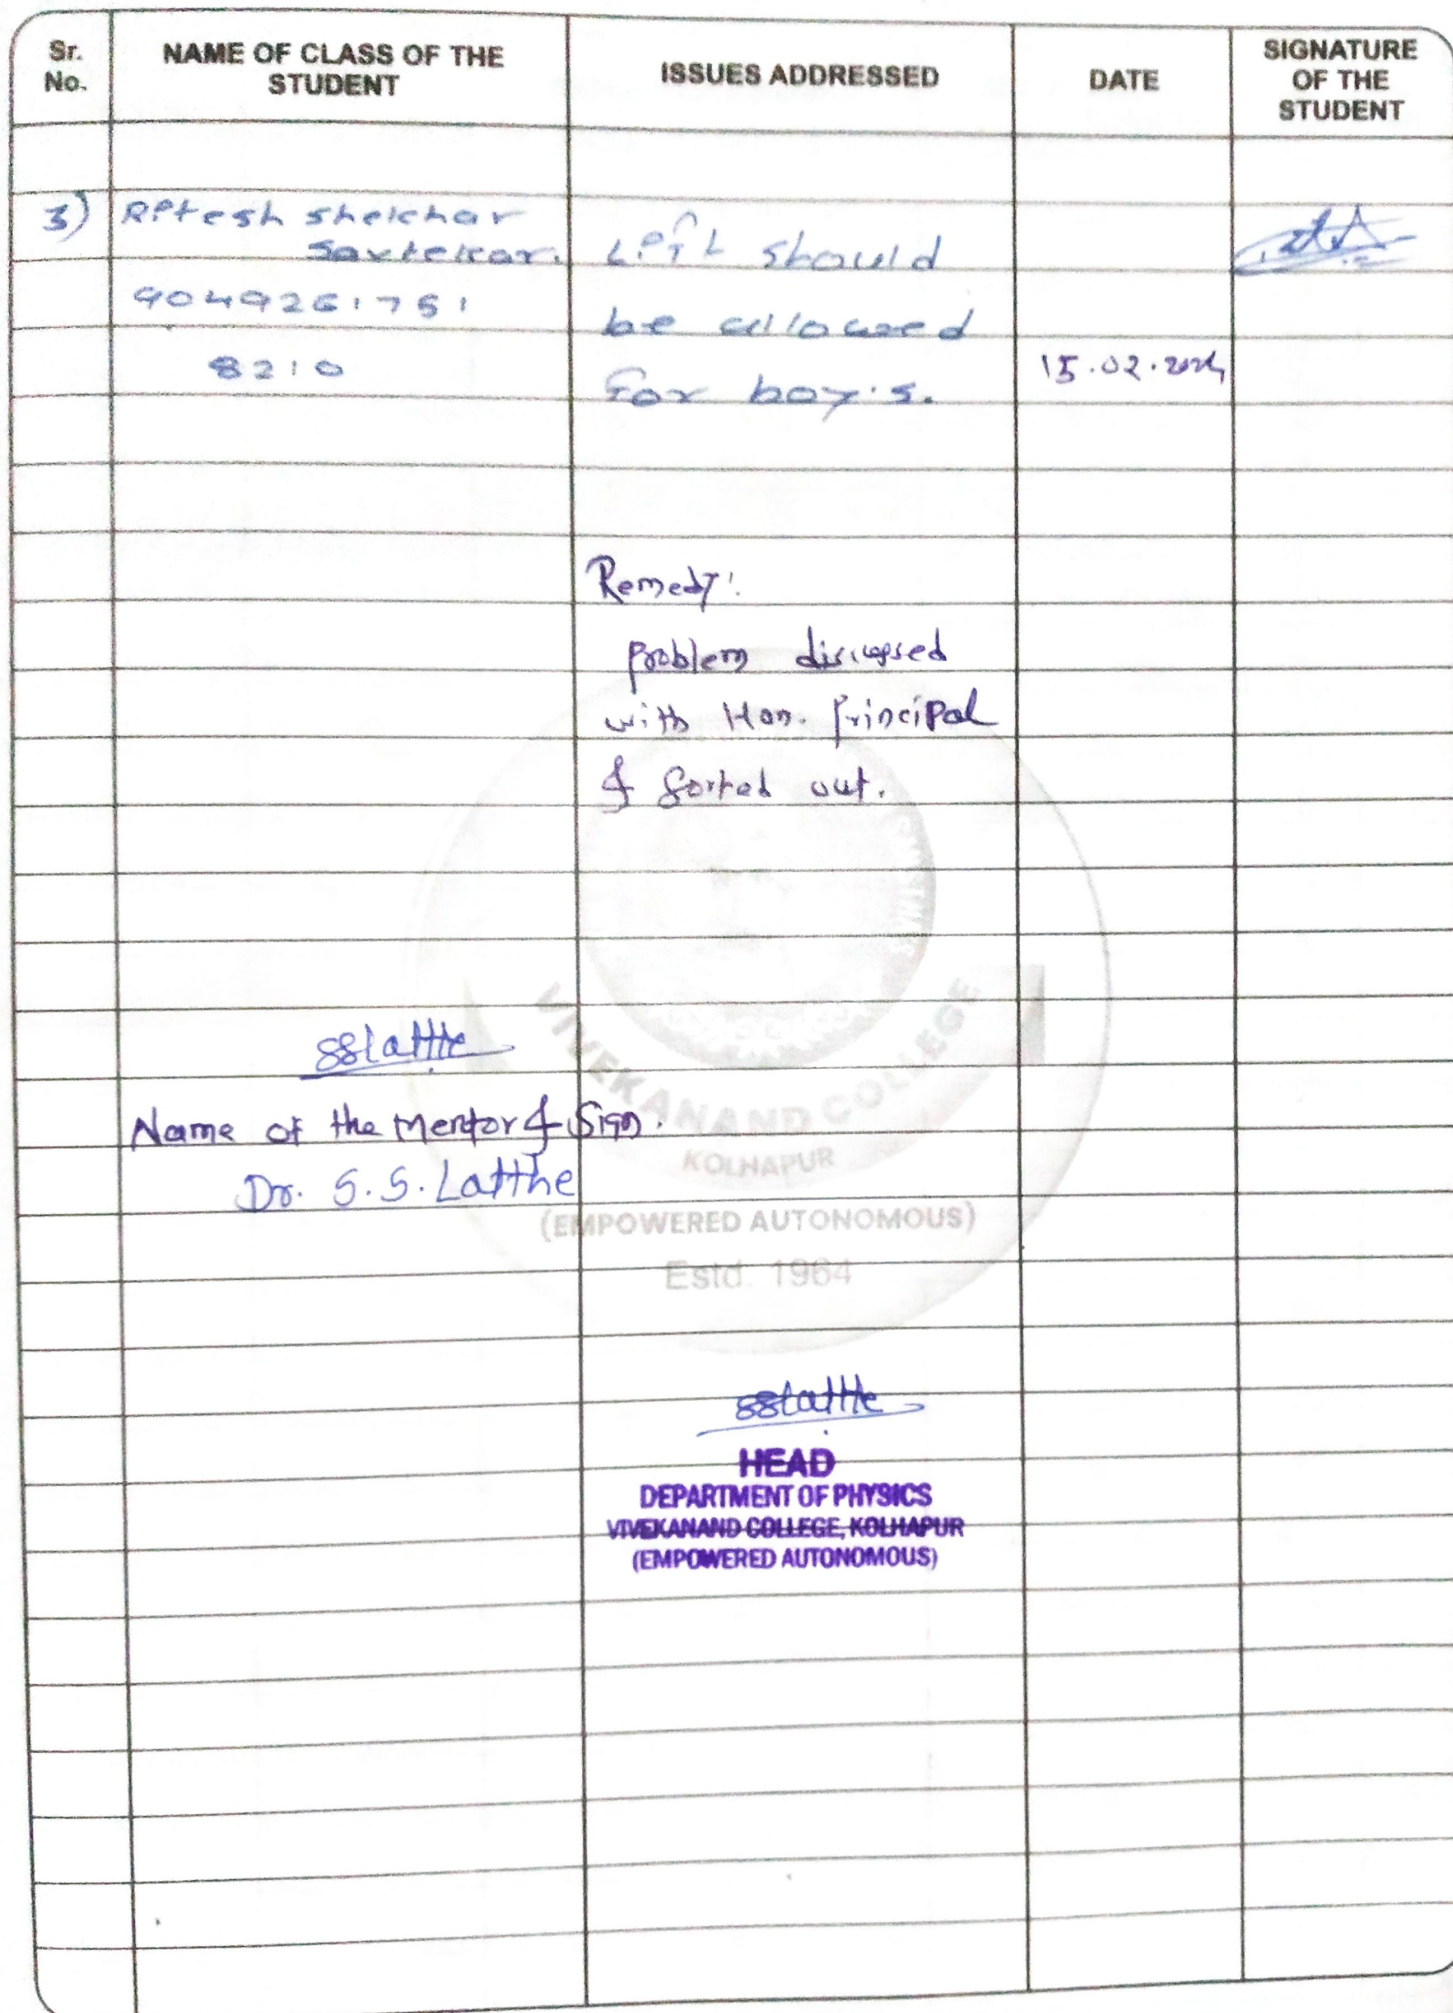 Sr. No.
NAME OF CLASS OF THE STUDENT
ISSUES ADDRESSED
DATE
SIGNATURE OF THE STUDENT
3) Ritesh Shekhar
Savtekar.
9049261751
8210
Lift should
be allowed
for boy's.
15.02.2024
Remedy:
problem discussed
with Hon. Principal
& Sorted out.
SSLatthe
Name of the Mentor & Sign.
Dr. S.S. Latthe
VIVEKANAND COLLEGE
KOLHAPUR
(EMPOWERED AUTONOMOUS)
Estd. 1964
SSLatthe
HEAD
DEPARTMENT OF PHYSICS
VIVEKANAND COLLEGE, KOLHAPUR
(EMPOWERED AUTONOMOUS)